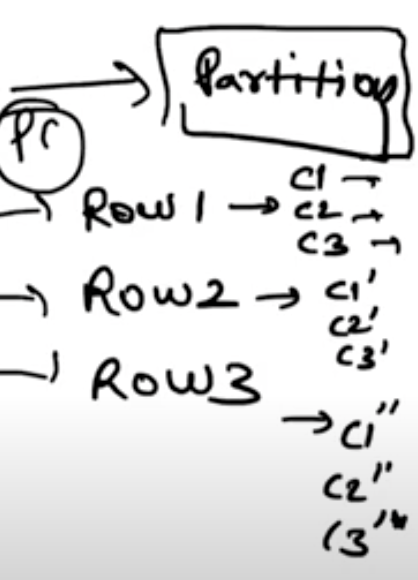 Partition
PC
C1 →
Row 1 → C2 →
C3 →
Row2 → C1'
C2'
C3'
Row3
→ C1''
C2''
C3''